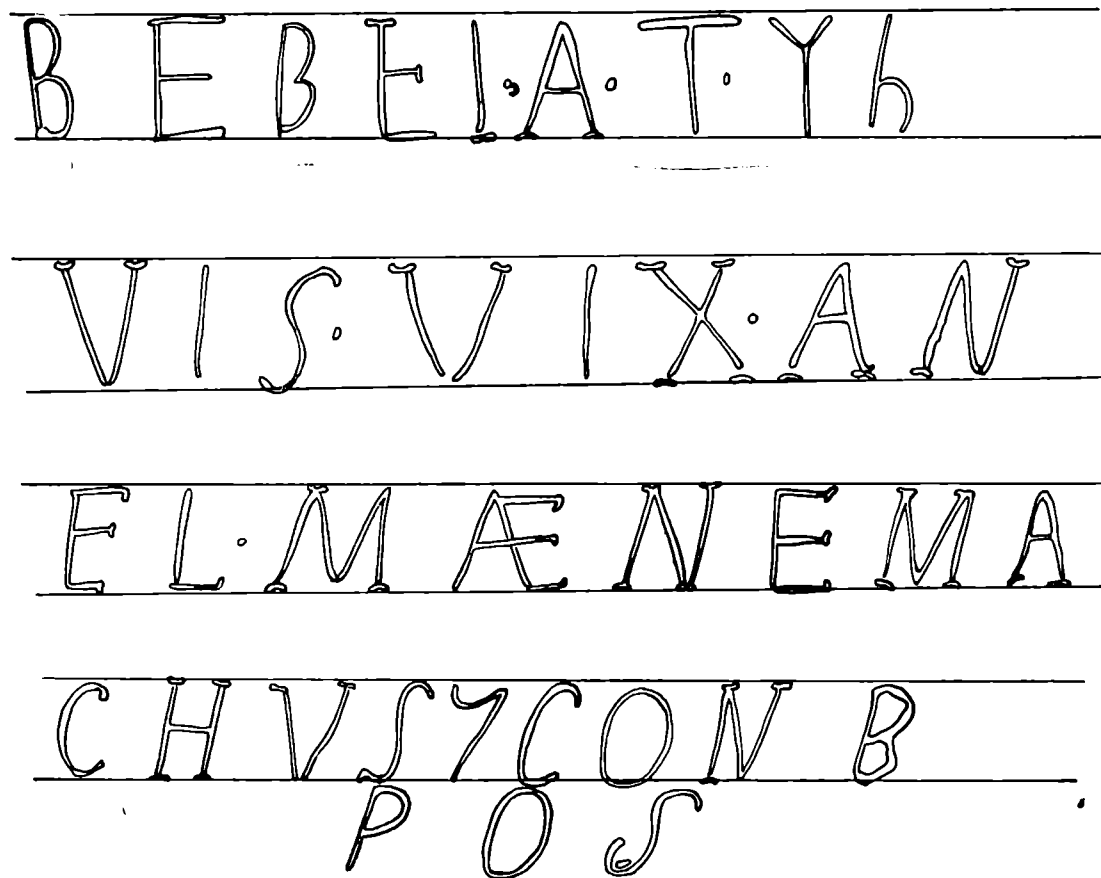 BEBEI·A·T·Yh
VIS·VIX·AN
EL·MÆNEMA
CHVS7CONB
POS